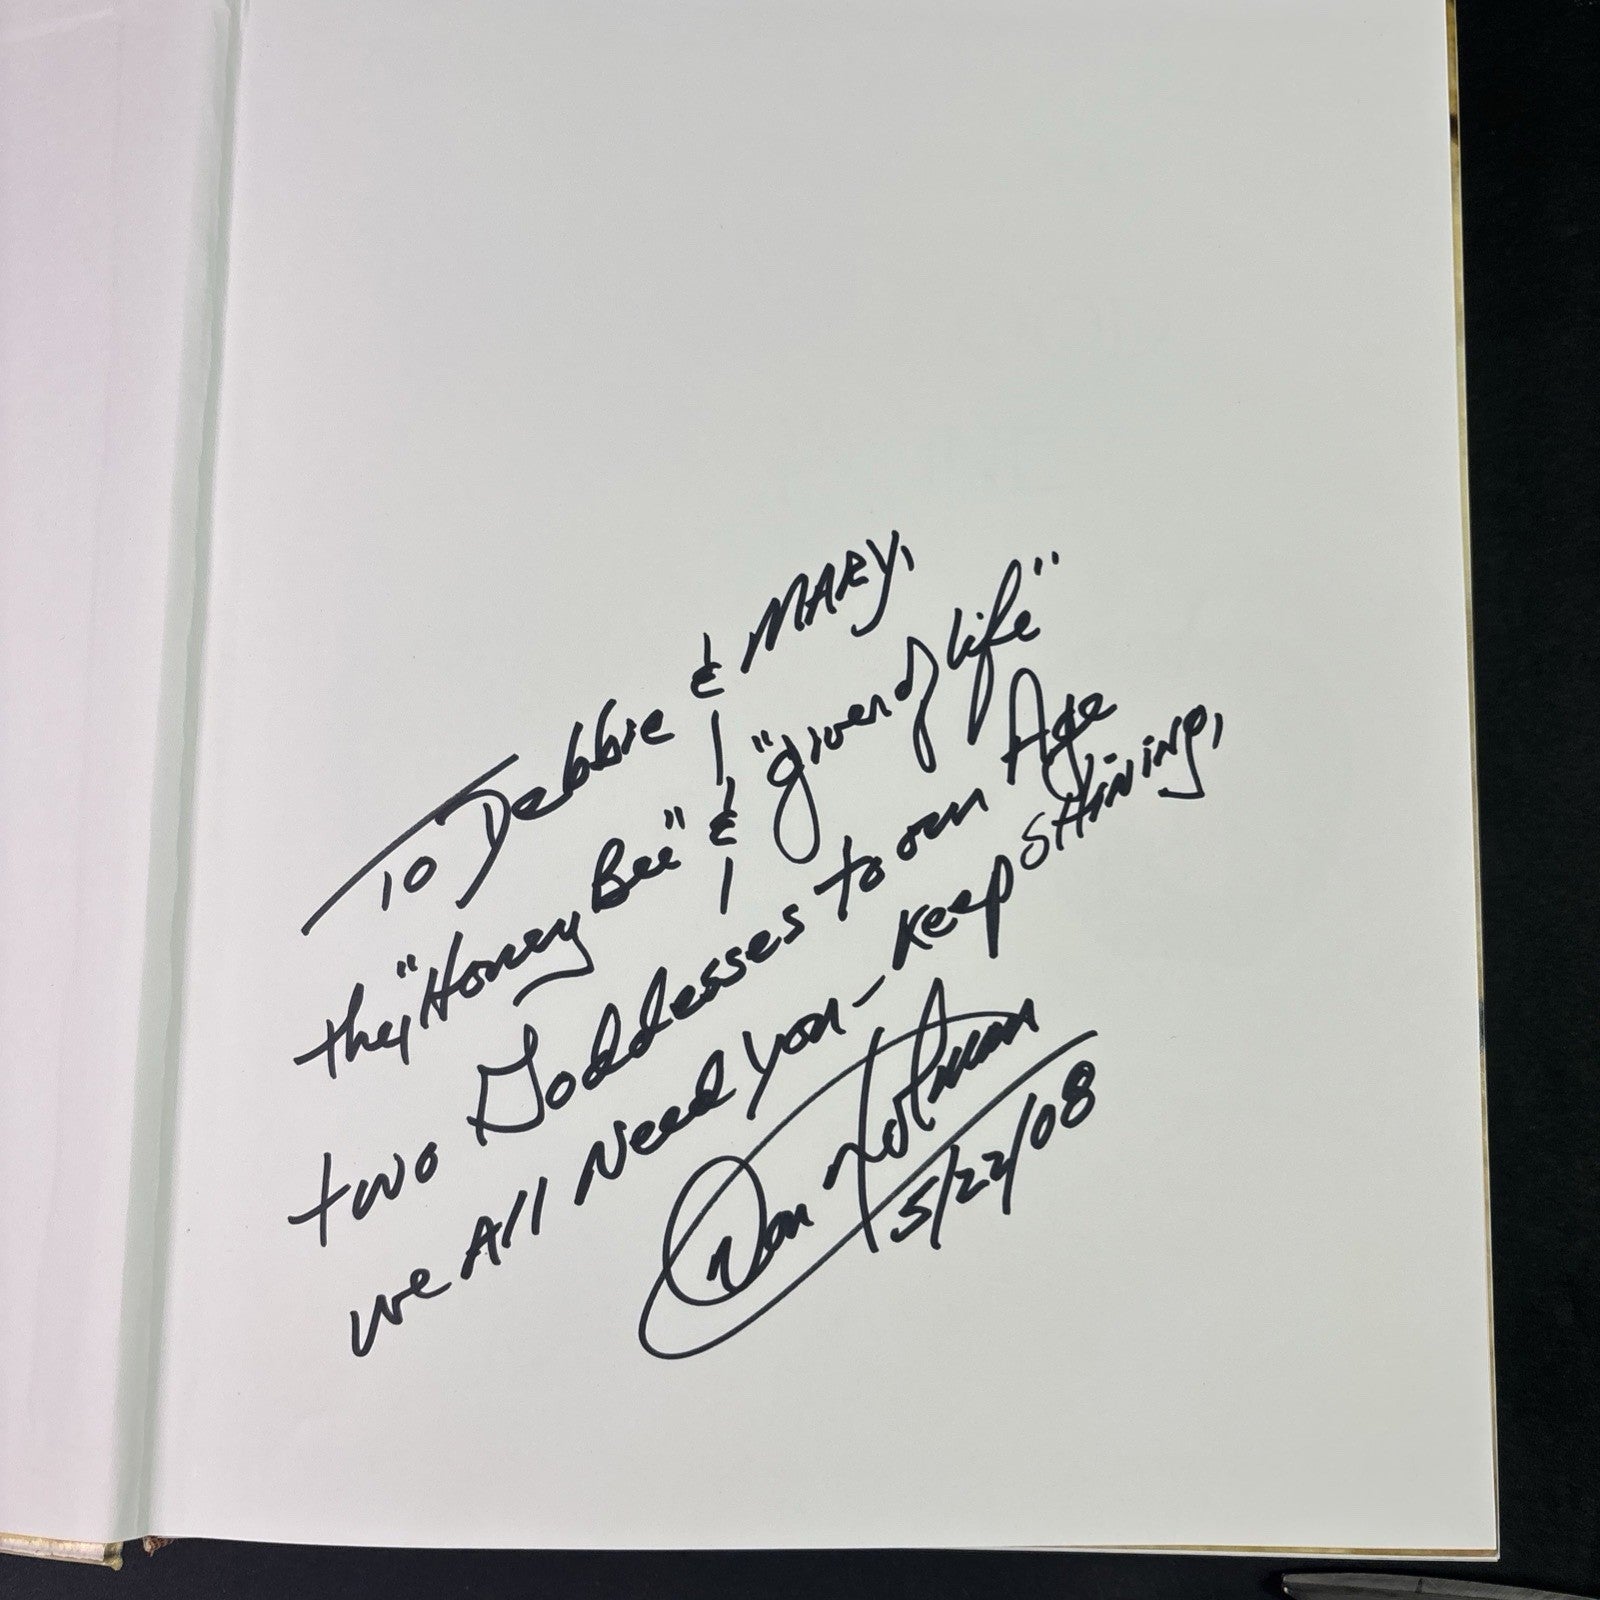 To Debbie & MARY,
the, "Honey Bee" & "giver of life"
two Goddesses to our Age
we All Need you - keep SHiNiNg,
5/22/08